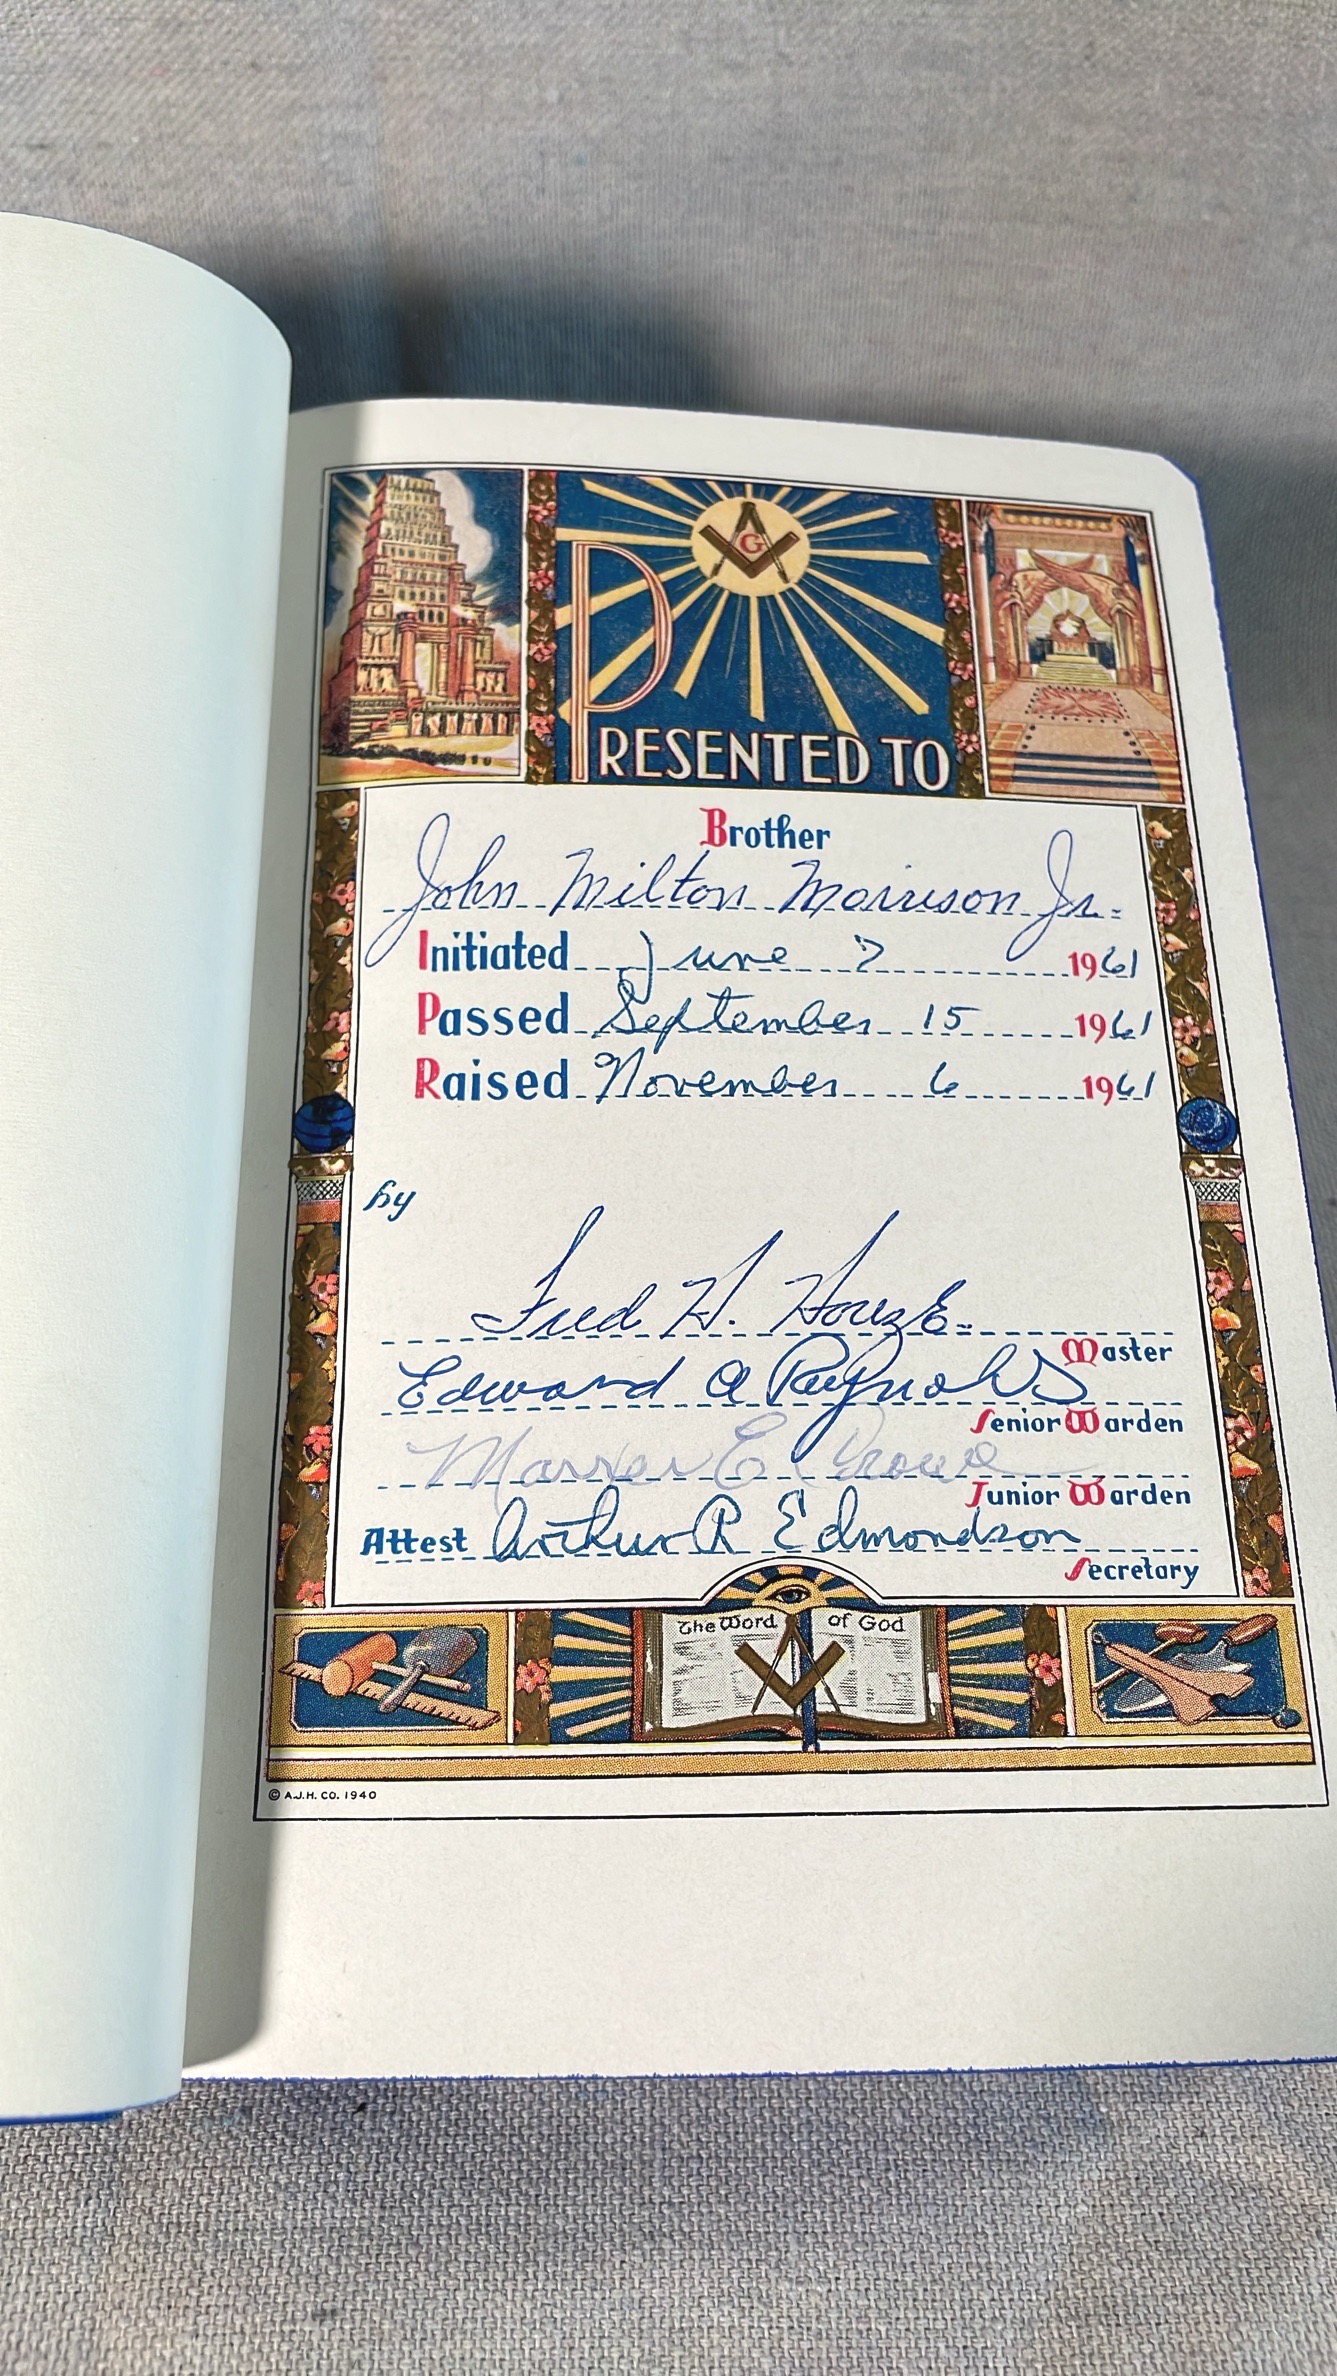 G
PRESENTED TO
Brother
John Milton Morrison Jr.
Initiated June 7 1961
Passed September 15 1961
Raised November 6 1961
by
Fred H. Houze
Master
Edward A Reynolds
Senior Warden
E Crowe
Junior Warden
Attest Arthur R Edmondson
Secretary
The Word of God
© A.J.H. CO. 1940